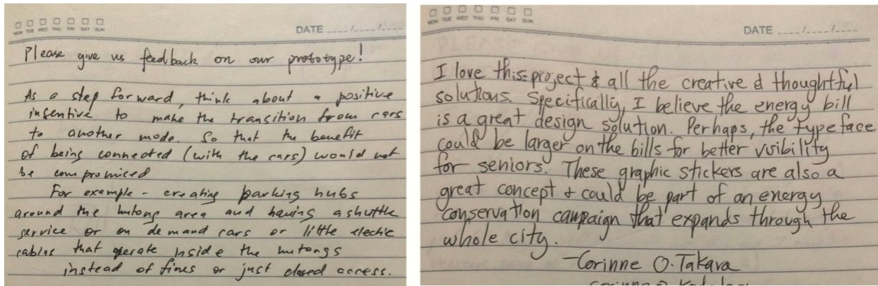 MON TUE WED THU FRI SAT SUN
DATE ..../..../....
Please give us feedback on our prototype!
As a step forward, think about a positive
insentive to make the transition from cars
to another mode. So that the benefit
of being connected (with the cars) would not
be compromised
For example - creating parking hubs
around the hutong area and having a shuttle
service or on demand cars or little electic
cabins that operate inside the hutongs
instead of fines or just closed access.
MON TUE WED THU FRI SAT SUN
DATE ..../..../....
I love this project & all the creative & thoughtful
solutions. Specifically, I believe the energy bill
is a great design solution. Perhaps, the type face
could be larger on the bills for better visibility
for seniors. These graphic stickers are also a
great concept + could be part of an energy
conservation campaign that expands through the
whole city.
-Corinne O. Takara